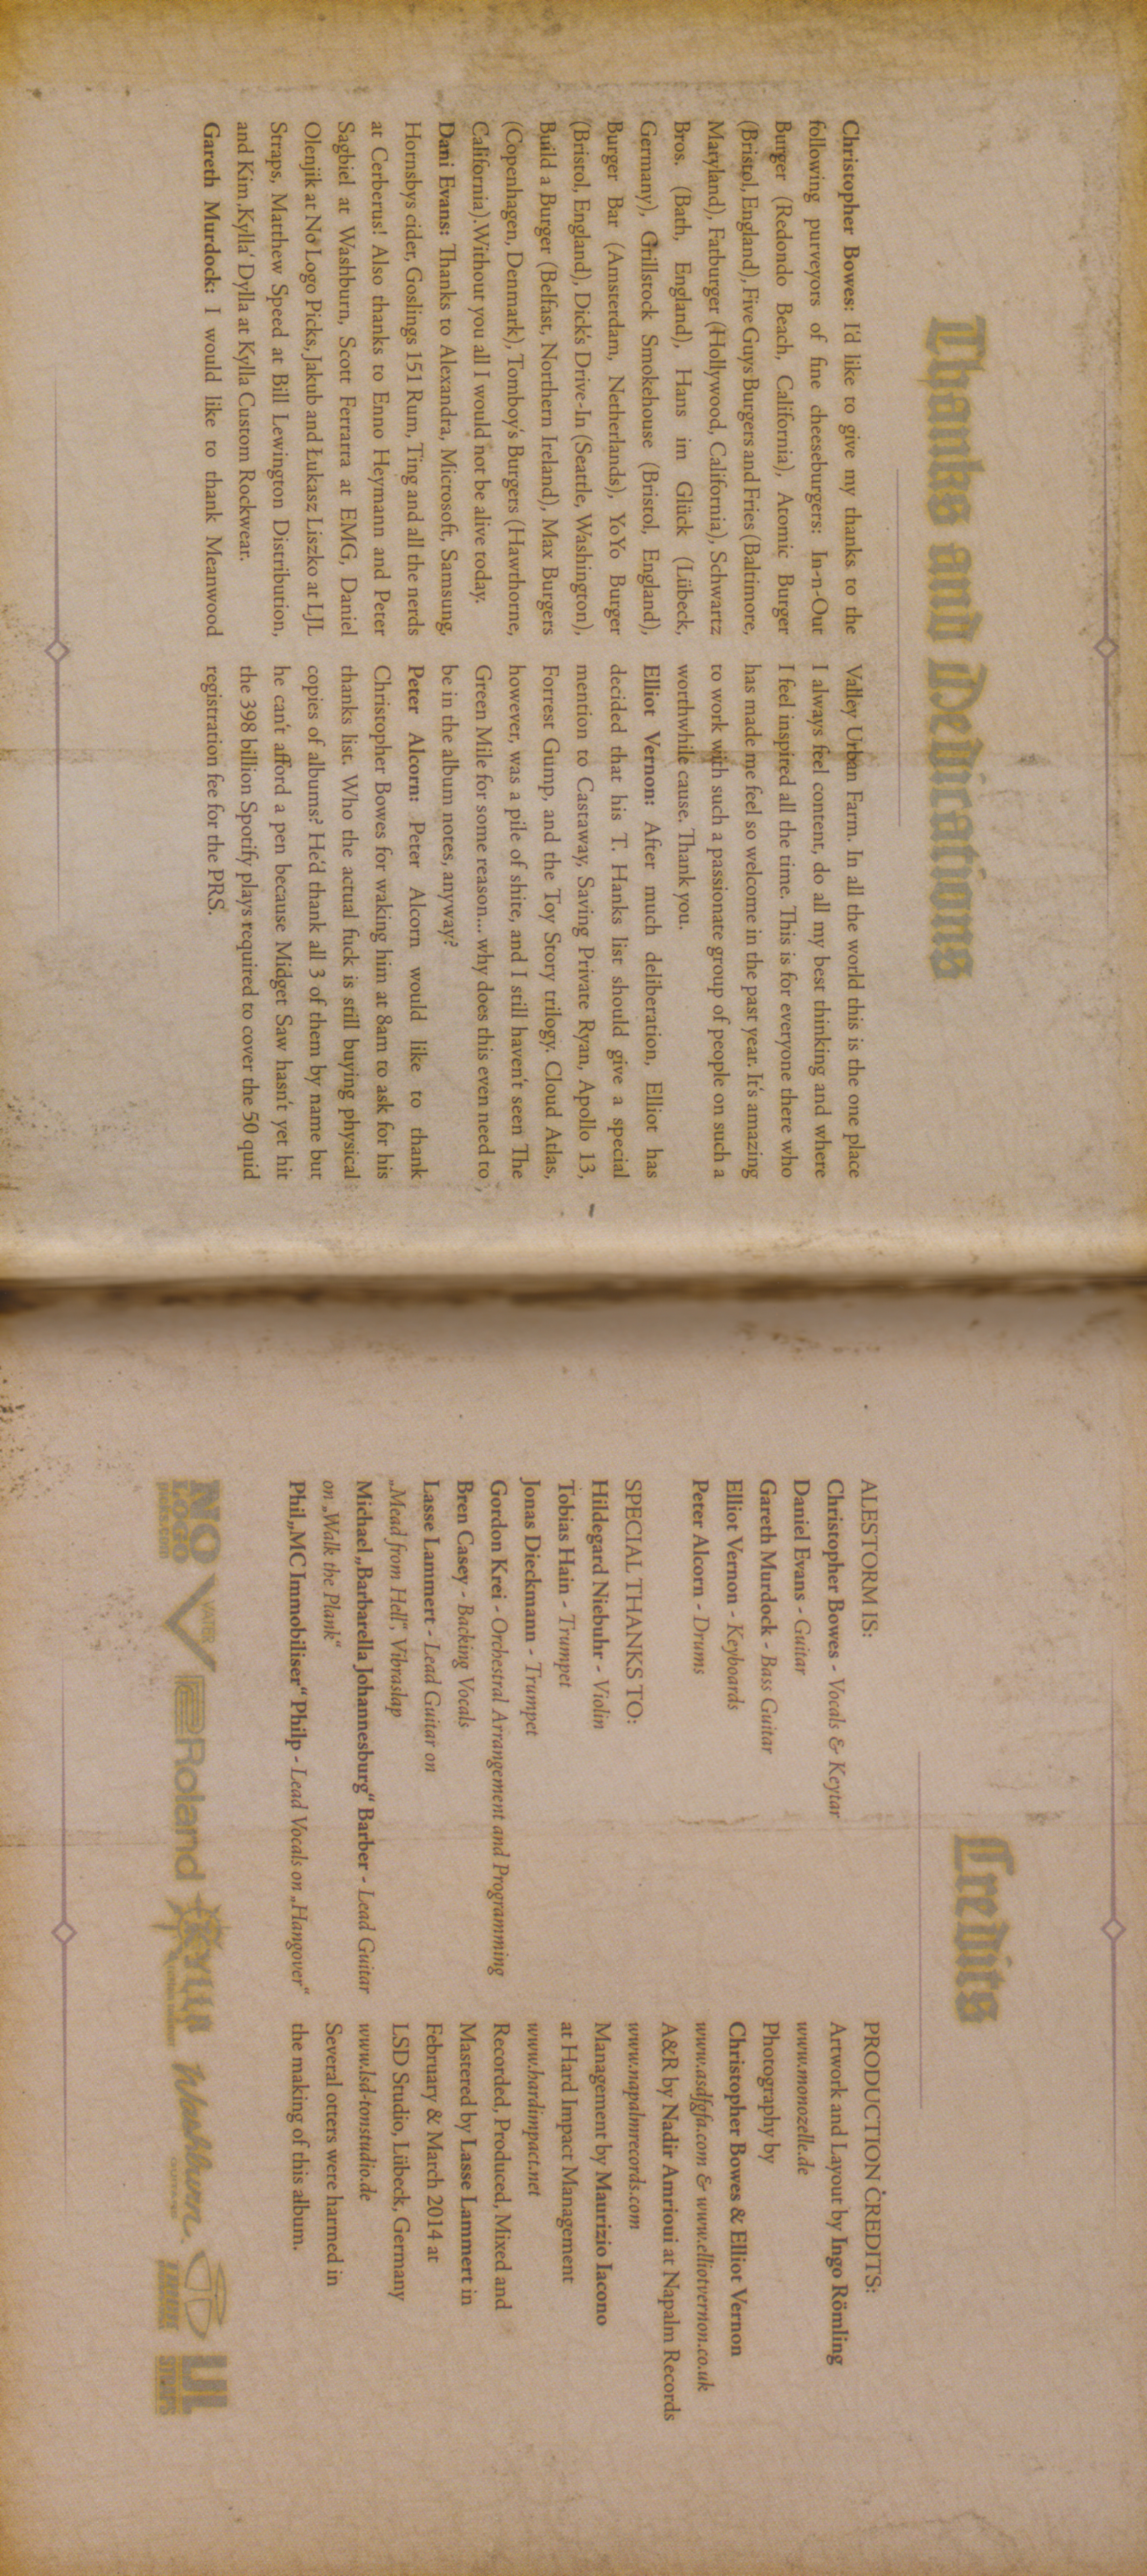 Thanks and Dedications
Christopher Bowes: I'd like to give my thanks to the
following purveyors of fine cheeseburgers: In-n-Out
Burger (Redondo Beach, California), Atomic Burger
(Bristol, England), Five Guys Burgers and Fries (Baltimore,
Maryland), Fatburger (Hollywood, California), Schwartz
Bros. (Bath, England), Hans im Glück (Lübeck,
Germany), Grillstock Smokehouse (Bristol, England),
Burger Bar (Amsterdam, Netherlands), YoYo Burger
(Bristol, England), Dick's Drive-In (Seattle, Washington),
Build a Burger (Belfast, Northern Ireland), Max Burgers
(Copenhagen, Denmark), Tomboy's Burgers (Hawthorne,
California). Without you all I would not be alive today.
Dani Evans: Thanks to Alexandra, Microsoft, Samsung,
Hornsbys cider, Goslings 151 Rum, Ting and all the nerds
at Cerberus! Also thanks to Enno Heymann and Peter
Sagbiel at Washburn, Scott Ferrarra at EMG, Daniel
Olenjik at No Logo Picks, Jakub and Łukasz Liszko at LJL
Straps, Matthew Speed at Bill Lewington Distribution,
and Kim ‚Kylla' Dylla at Kylla Custom Rockwear.
Gareth Murdock: I would like to thank Meanwood
Valley Urban Farm. In all the world this is the one place
I always feel content, do all my best thinking and where
I feel inspired all the time. This is for everyone there who
has made me feel so welcome in the past year. It's amazing
to work with such a passionate group of people on such a
worthwhile cause. Thank you.
Elliot Vernon: After much deliberation, Elliot has
decided that his T. Hanks list should give a special
mention to Castaway, Saving Private Ryan, Apollo 13,
Forrest Gump, and the Toy Story trilogy. Cloud Atlas,
however, was a pile of shite, and I still haven't seen The
Green Mile for some reason... why does this even need to
be in the album notes, anyway?
Peter Alcorn: Peter Alcorn would like to thank
Christopher Bowes for waking him at 8am to ask for his
thanks list. Who the actual fuck is still buying physical
copies of albums? He'd thank all 3 of them by name but
he can't afford a pen because Midget Saw hasn't yet hit
the 398 billion Spotify plays required to cover the 50 quid
registration fee for the PRS.
Credits
ALESTORM IS:
Christopher Bowes - Vocals & Keytar
Daniel Evans - Guitar
Gareth Murdock - Bass Guitar
Elliot Vernon - Keyboards
Peter Alcorn - Drums
SPECIAL THANKS TO:
Hildegard Niebuhr - Violin
Tobias Hain - Trumpet
Jonas Dieckmann - Trumpet
Gordon Krei - Orchestral Arrangement and Programming
Bren Casey - Backing Vocals
Lasse Lammert - Lead Guitar on
„Mead from Hell", Vibraslap
Michael „Barbarella Johannesburg" Barber - Lead Guitar
on „Walk the Plank"
Phil „MC Immobiliser" Philp - Lead Vocals on „Hangover"
PRODUCTION CREDITS:
Artwork and Layout by Ingo Römling
www.monozelle.de
Photography by
Christopher Bowes & Elliot Vernon
www.asdfgfa.com & www.elliotvernon.co.uk
A&R by Nadir Amrioui at Napalm Records
www.napalmrecords.com
Management by Maurizio Iacono
at Hard Impact Management
www.hardimpact.net
Recorded, Produced, Mixed and
Mastered by Lasse Lammert in
February & March 2014 at
LSD Studio, Lübeck, Germany
www.lsd-tonstudio.de
Several otters were harmed in
the making of this album.
NO LOGO picks.com
VATER
Roland
KYLLA
Washburn
LJL STRAPS